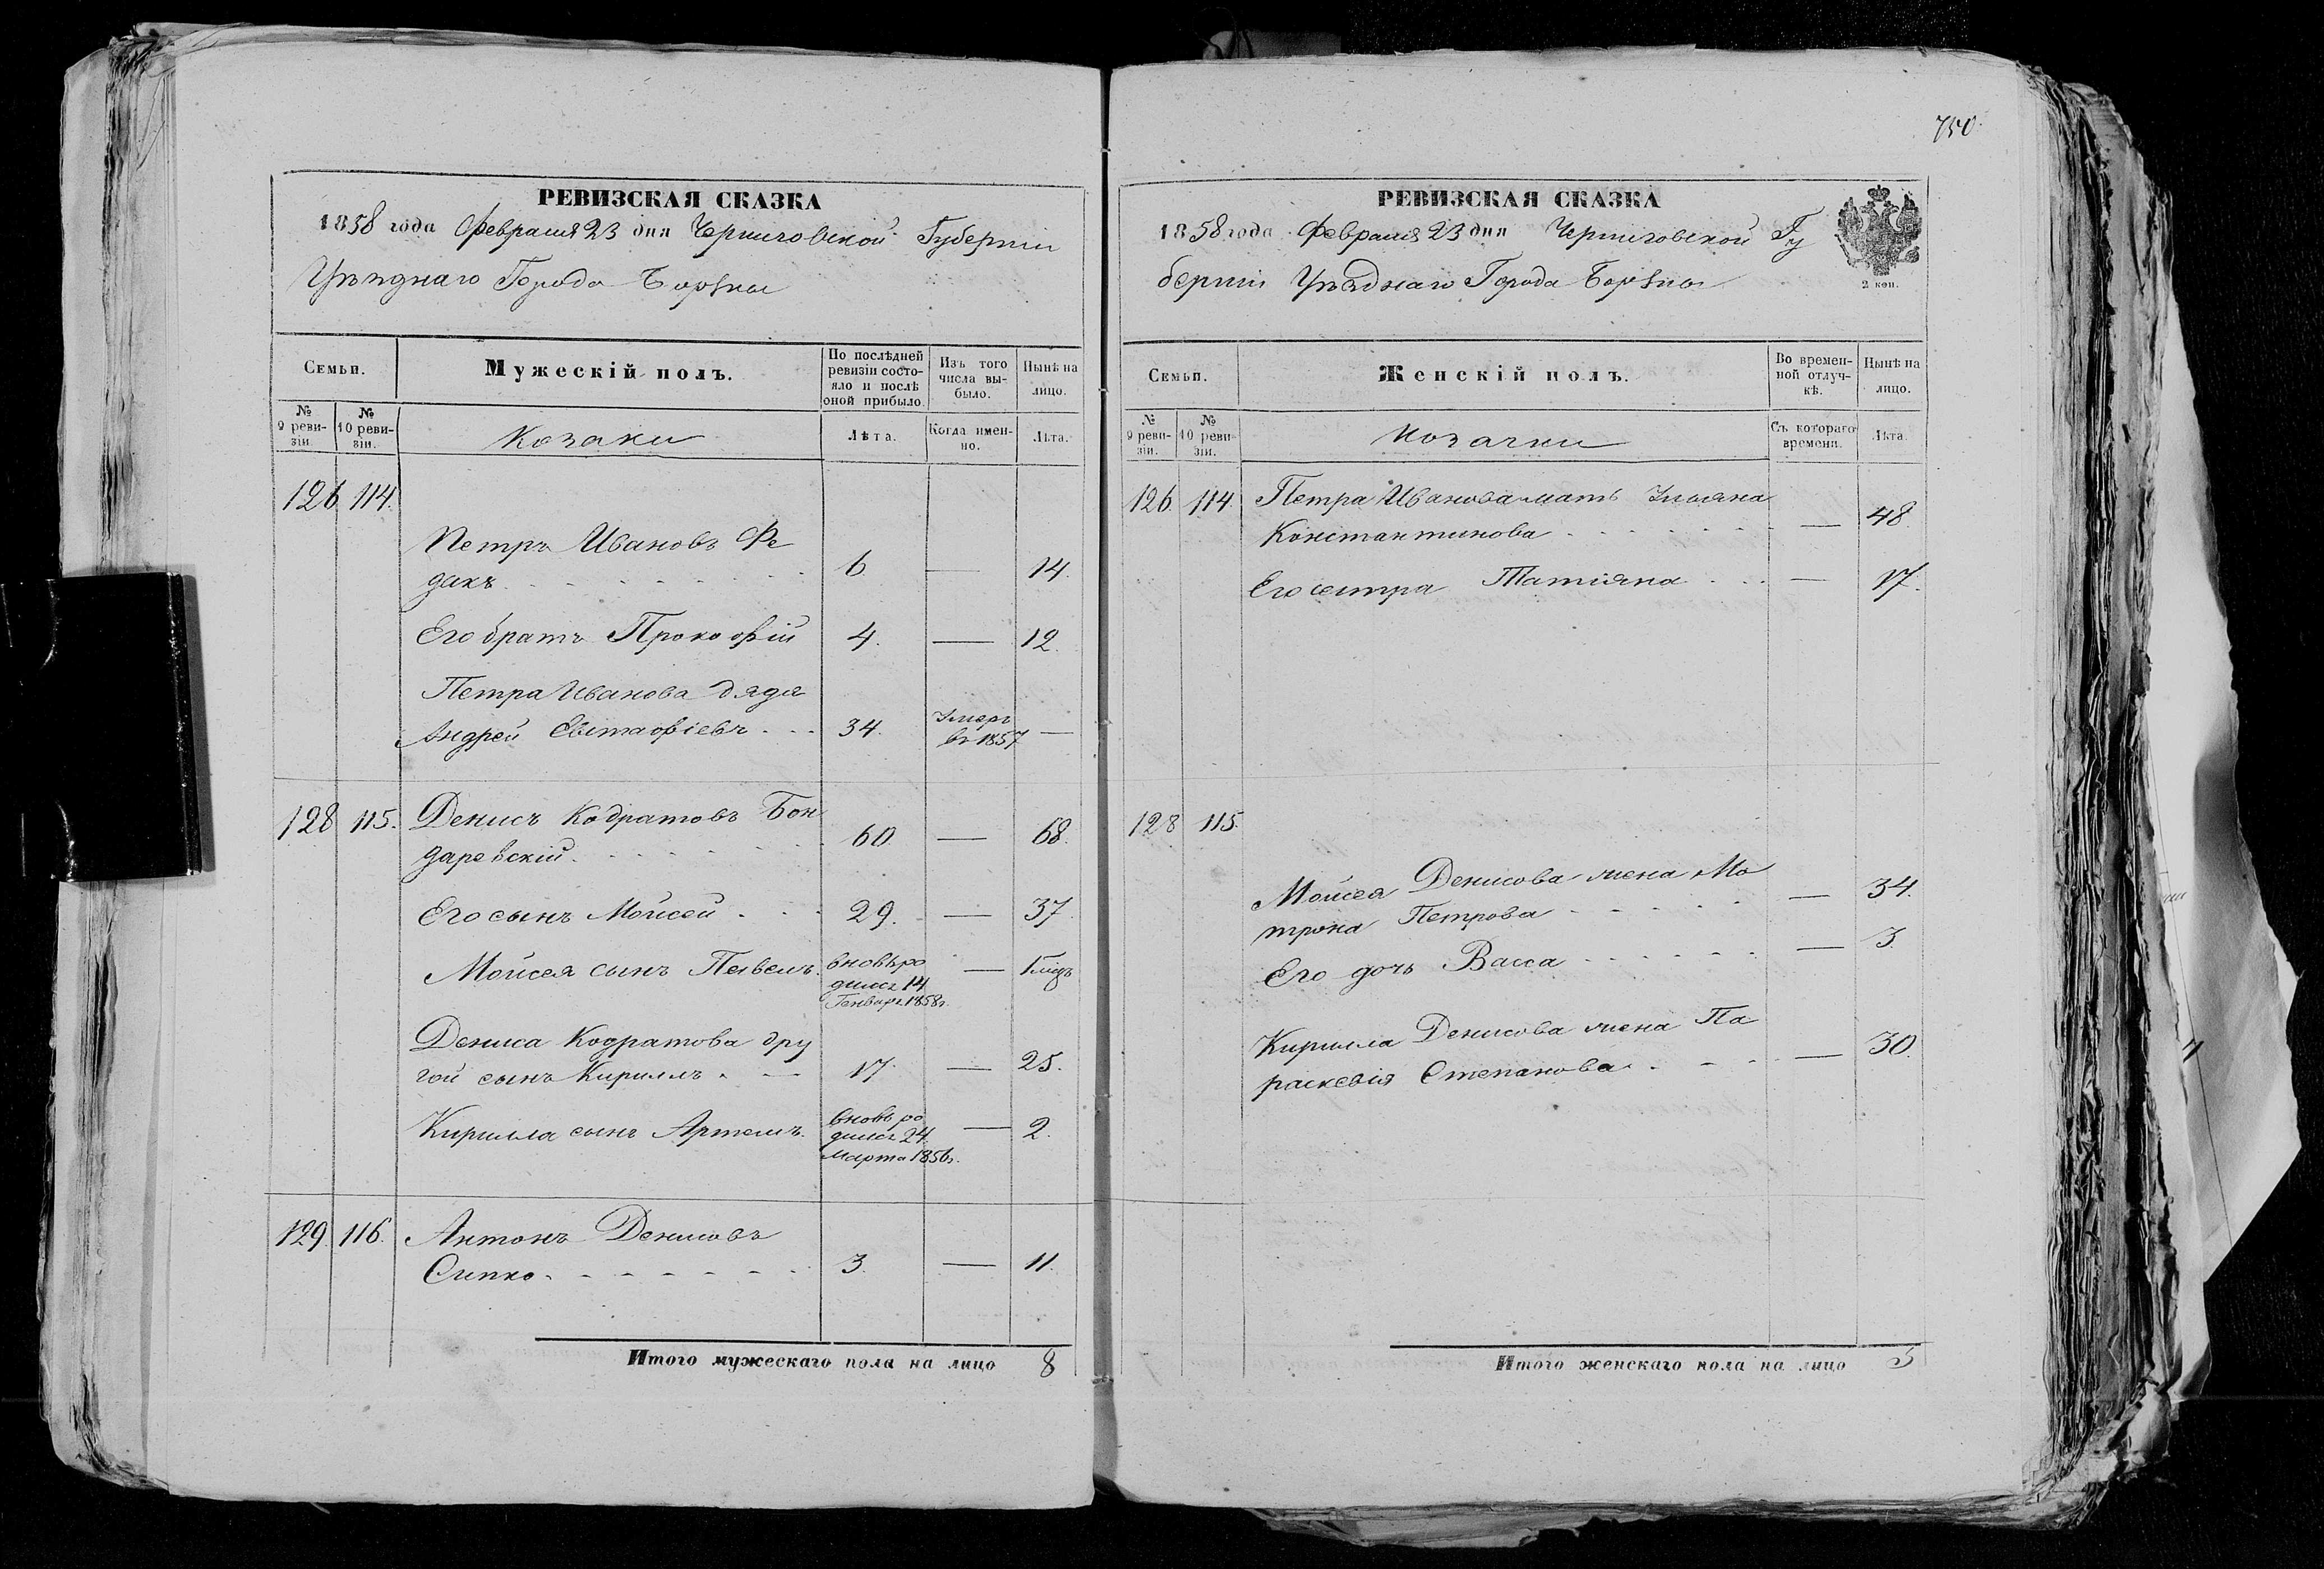 750.
РЕВИЗСКАЯ СКАЗКА
1858 года Февраля 23 дня Черниговской Губерніи
Уѣзднаго Города Борзны
Семьи.
Мужескій полъ.
По послѣдней ревизіи состояло и послѣ оной прибыло.
Изъ того числа выбыло.
Нынѣ на лицо.
№ 9 ревизіи.
№ 10 ревизіи.
Козаки
Лѣта.
Когда именно.
Лѣта.
126 114.
Петръ Ивановъ Фе
дакъ 6. — 14.
Его братъ Прокофій 4. — 12.
Петра Иванова дядя
Андрей Евстафіевъ 34. Умеръ въ 1857 —
128 115. Денисъ Кодратовъ Бон
даревскій 60 — 68.
Его сынъ Мойсей 29. — 37
Мойсея сынъ Павелъ. вновь ро
дился 14
Генваря 1858г. —
Дениса Кодратова дру
гой сынъ Кириллъ 17 — 25.
Кирилла сынъ Артемъ. вновь ро
дился 24
Марта 1856г. — 2.
129. 116. Антонъ Денисовъ
Сипко 3. — 11.
Итого мужескаго пола на лицо 8
РЕВИЗСКАЯ СКАЗКА
1858 года Февраля 23 дня Черниговской Гу
берніи Уѣзднаго Города Борзны
2 коп.
Семьи.
Женскій полъ.
Во временной отлучкѣ.
Нынѣ на лицо.
№ 9 ревизіи.
№ 10 ревизіи.
Козачки
Съ котораго времени.
Лѣта.
126. 114. Петра Иванова мать Ульяна
Константинова — 48.
Его сестра Татіяна — 17.
128 115.
Мойсея Денисова жена Мо
трона Петрова — 34.
Его дочь Васса — 3.
Кирилла Денисова жена Па
раскевія Степанова — 30.
Итого женскаго пола на лицо 5